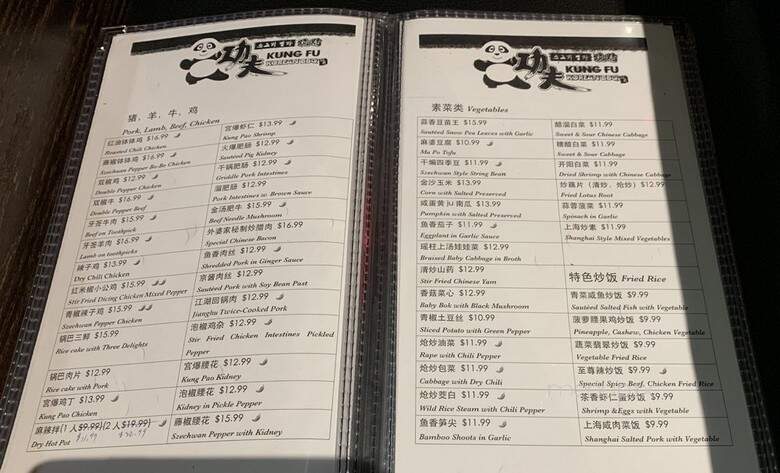 功夫
KUNG FU
KOREAN BBQ
猪、羊、牛、鸡
Pork, Lamb, Beef, Chicken
红油钵钵鸡 $16.99
Roasted Chili Chicken
藤椒钵钵鸡 $16.99
Szechwan Pepper Bo-Bo Chicken
双椒鸡 $12.99
Double Pepper Chicken
双椒牛 $16.99
Double Pepper Beef
牙签牛肉 $15.99
Beef on Toothpick
牙签羊肉 $16.99
Lamb on toothpicks
辣子鸡 $13.99
Dry Chili Chicken
红米椒小公鸡 $15.99
Stir Fried Dicing Chicken Mixed Pepper
青椒辣子鸡 $15.99
Szechwan Pepper Chicken
锅巴三鲜 $15.99
Rice cake with Three Delights
锅巴肉片 $12.99
Rice cake with Pork
宫爆鸡丁 $13.99
Kung Pao Chicken
麻辣拌(1 人$9.99)(2 人$19.99)
Dry Hot Pot $11.99
宫爆虾仁 $13.99
Kung Pao Shrimp
火爆肥肠 $12.99
Sautéed Pig Kidney
干锅肥肠 $12.99
Griddle Pork Intestines
溜肥肠 $12.99
Pork Intestines w Brown Sauce
金汤肥牛 $15.99
Beef Needle Mushroom
外婆家秘制炒腊肉 $16.99
Special Chinese Bacon
鱼香肉丝 $12.99
Shredded Pork in Ginger Sauce
京酱肉丝 $12.99
Sautéed Pork with Soy Bean Past
江湖回锅肉 $12.99
Jianghu Twice-Cooked Pork
泡椒鸡杂 $12.99
Stir Fried Chicken Intestines Pickled
Pepper
宫爆腰花 $12.99
Kung Pao Kidney
泡椒腰花 $12.99
Kidney in Pickle Pepper
藤椒腰花 $15.99
Szechwan Pepper with Kidney
功夫
KUNG FU
KOREAN BBQ
素菜类 Vegetables
蒜香豆苗王 $15.99
Sautéed Snow Pea Leaves with Garlic
麻婆豆腐 $10.99
Ma Po Tofu
干煸四季豆 $11.99
Szechwan Style String Bean
金沙玉米 $13.99
Corn with Salted Preserved
咸蛋黄 ju 南瓜 $13.99
Pumpkin with Salted Preserved
鱼香茄子 $11.99
Eggplant in Garlic Sauce
瑶柱上汤娃娃菜 $12.99
Braised Baby Cabbage in Broth
清炒山药 $12.99
Stir Fried Chinese Yam
香菇菜心 $12.99
Baby Bok with Black Mushroom
青椒土豆丝 $10.99
Sliced Potato with Green Pepper
炝炒油菜 $11.99
Rape with Chili Pepper
炝炒包菜 $11.99
Cabbage with Dry Chili
炝炒茭白 $11.99
Wild Rice Steam with Chili Pepper
鱼香笋尖 $11.99
Bamboo Shoots in Garlic
醋溜白菜 $11.99
Sweet & Sour Chinese Cabbage
糖醋白菜 $11.99
Sweet & Sour Cabbage
开阳白菜 $11.99
Dried Shrimp with Chinese Cabbage
炒藕片（清炒、炝炒）$12.99
Fried Lotus Root
蒜蓉菠菜 $11.99
Spinach in Garlic
上海炒素 $11.99
Shanghai Style Mixed Vegetables
特色炒饭 Fried Rice
青菜咸鱼炒饭 $9.99
Sautéed Salted Fish with Vegetable
菠萝腰果鸡炒饭 $9.99
Pineapple, Cashew, Chicken Vegetable
蔬菜翡翠炒饭 $9.99
Vegetable Fried Rice
至尊辣炒饭 $9.99
Special Spicy Beef, Chicken Fried Rice
茶香虾仁蛋炒饭 $9.99
Shrimp &Eggs with Vegetable
上海咸肉菜饭 $9.99
Shanghai Salted Pork with Vegetable